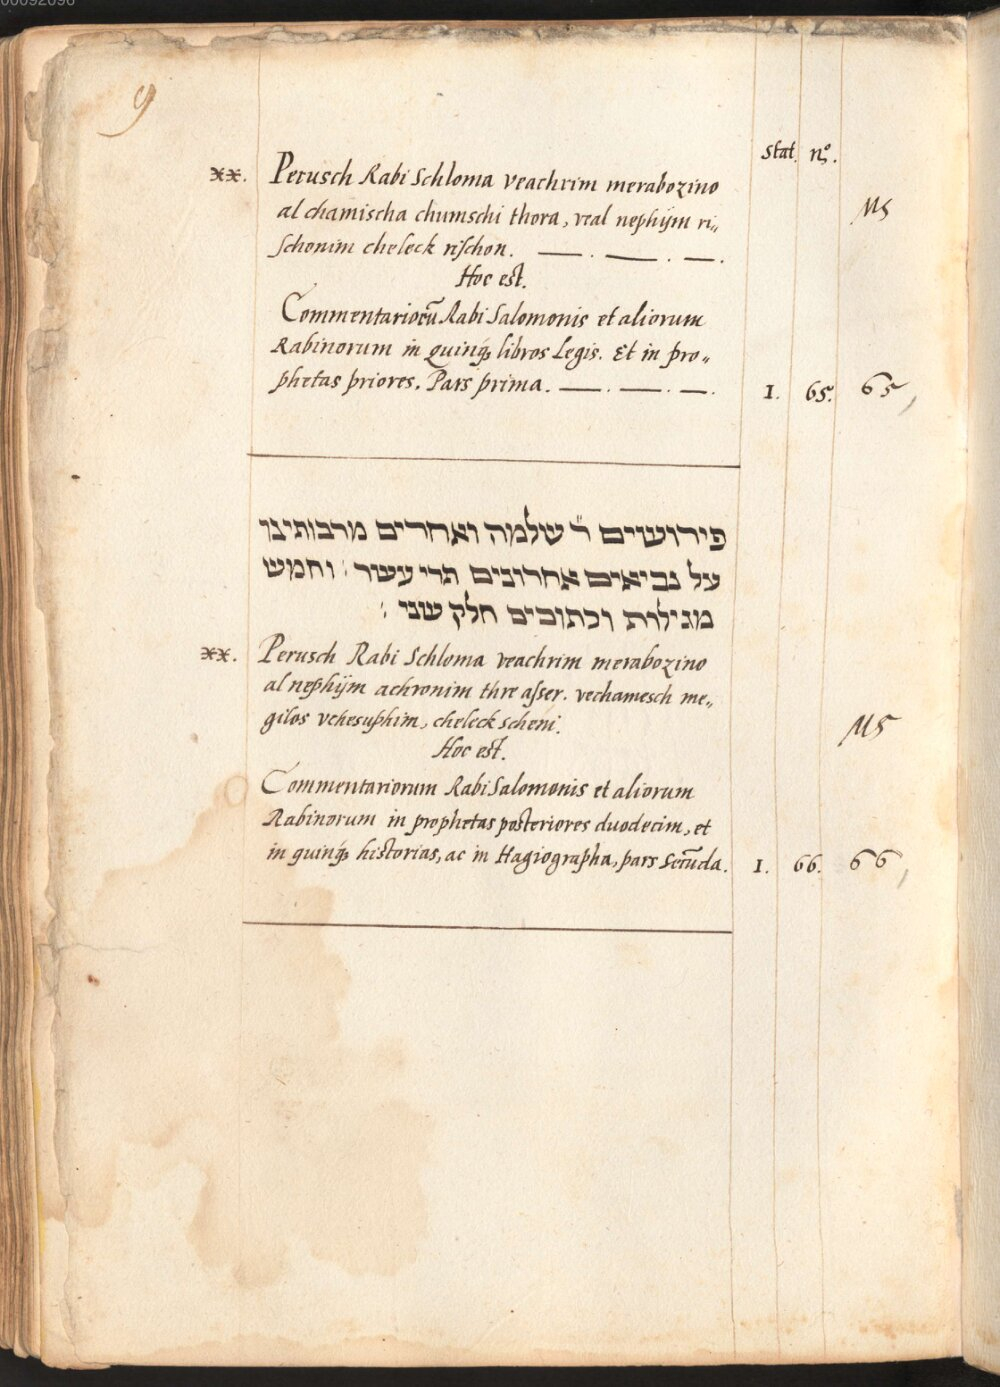 00092096
9
Stat. nº.
xx. Perusch Rabi Schloma veachrim merabozino
al chamischa chumschi thora, veal nephijm ri„
schonim cheleck rischon.
MS
Hoc est.
Commentariorū Rabi Salomonis et aliorum
Rabinorum in Quinqꝫ libros Legis. Et in pro„
phetas priores. Pars prima. 1. 65. 65
פירושים ר׳ שלמה ואחרים מרבותינו
על נביאים אחרונים תרי עשר : וחמש
מגילות וכתובים חלק שני :
xx. Perusch Rabi Schloma veachrim merabozino
al nephijm achronim thre asser. vechamesch me„
gilos vchesuphim, cheleck scheni.
MS
Hoc est.
Commentariorum Rabi Salomonis et aliorum
Rabinorum in prophetas posteriores duodecim, et
in quinqꝫ historias, ac in Hagiographa, pars Secūda. 1. 66. 66